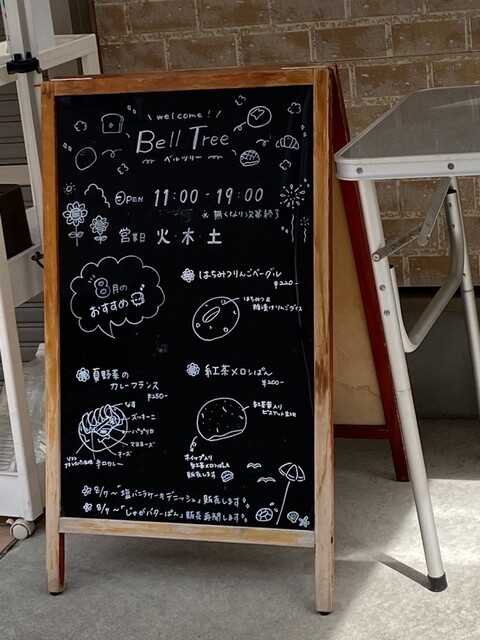 \ welcome! /
Bell Tree
ベルツリー
OPEN 11:00 - 19:00
※ 無くなり次第終了
営業日 火・木・土
8月の
おすすめ
はちみつりんごベーグル
¥220-
はちみつ&
糖漬けりんごダイス
夏野菜の
カレーフランス
¥250-
なす
ズッキーニ
パプリカ
マヨネーズ
チーズ
辛口カレー
ソフト
フランスパン生地
紅茶メロンぱん
¥200-
紅茶葉入り
ビスケット生地
ホイップ入り
紅茶メロンぱんも
販売します
8/7~「塩バニラケーキデニッシュ」販売します
8/7~「じゃがバターぱん」販売再開します